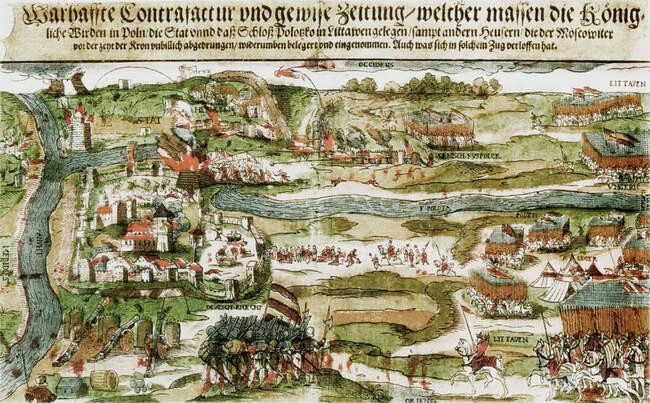 Warhaffte Contrafactur vnd gewise Zeitung/welcher massen die König-
liche Wirden in Poln/die Stat vnnd daß Schloß Polotzko in Littawen gelegen/sampt andern Heusern/die der Moscowiter
vor der zeyt der Kron vnbillich abgedrungen/widerumben belegert vnd eingenommen. Auch was sich in solchem Zug verloffen hat.
OCCIDENS
LITTAVEN
POLOTA
DEVTSCH KNECHT
LITTAVEN
ORIENS